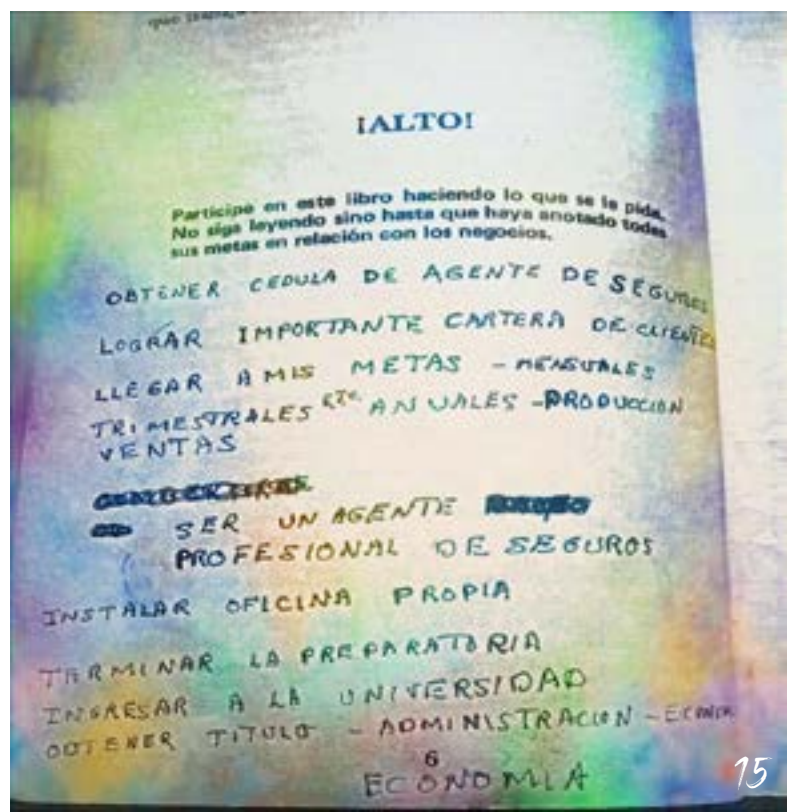 ¡ALTO!
Participe en este libro haciendo lo que se le pida.
No siga leyendo sino hasta que haya anotado todas
sus metas en relación con los negocios.
OBTENER CEDULA DE AGENTE DE SEGUROS
LOGRAR IMPORTANTE CARTERA DE CLIENTES
LLEGAR A MIS METAS - MENSUALES
TRIMESTRALES ETC. ANUALES - PRODUCCION
VENTAS
SER UN AGENTE
PROFESIONAL DE SEGUROS
INSTALAR OFICINA PROPIA
TERMINAR LA PREPARATORIA
INGRESAR A LA UNIVERSIDAD
OBTENER TITULO - ADMINISTRACION -
6
ECONOMIA
15